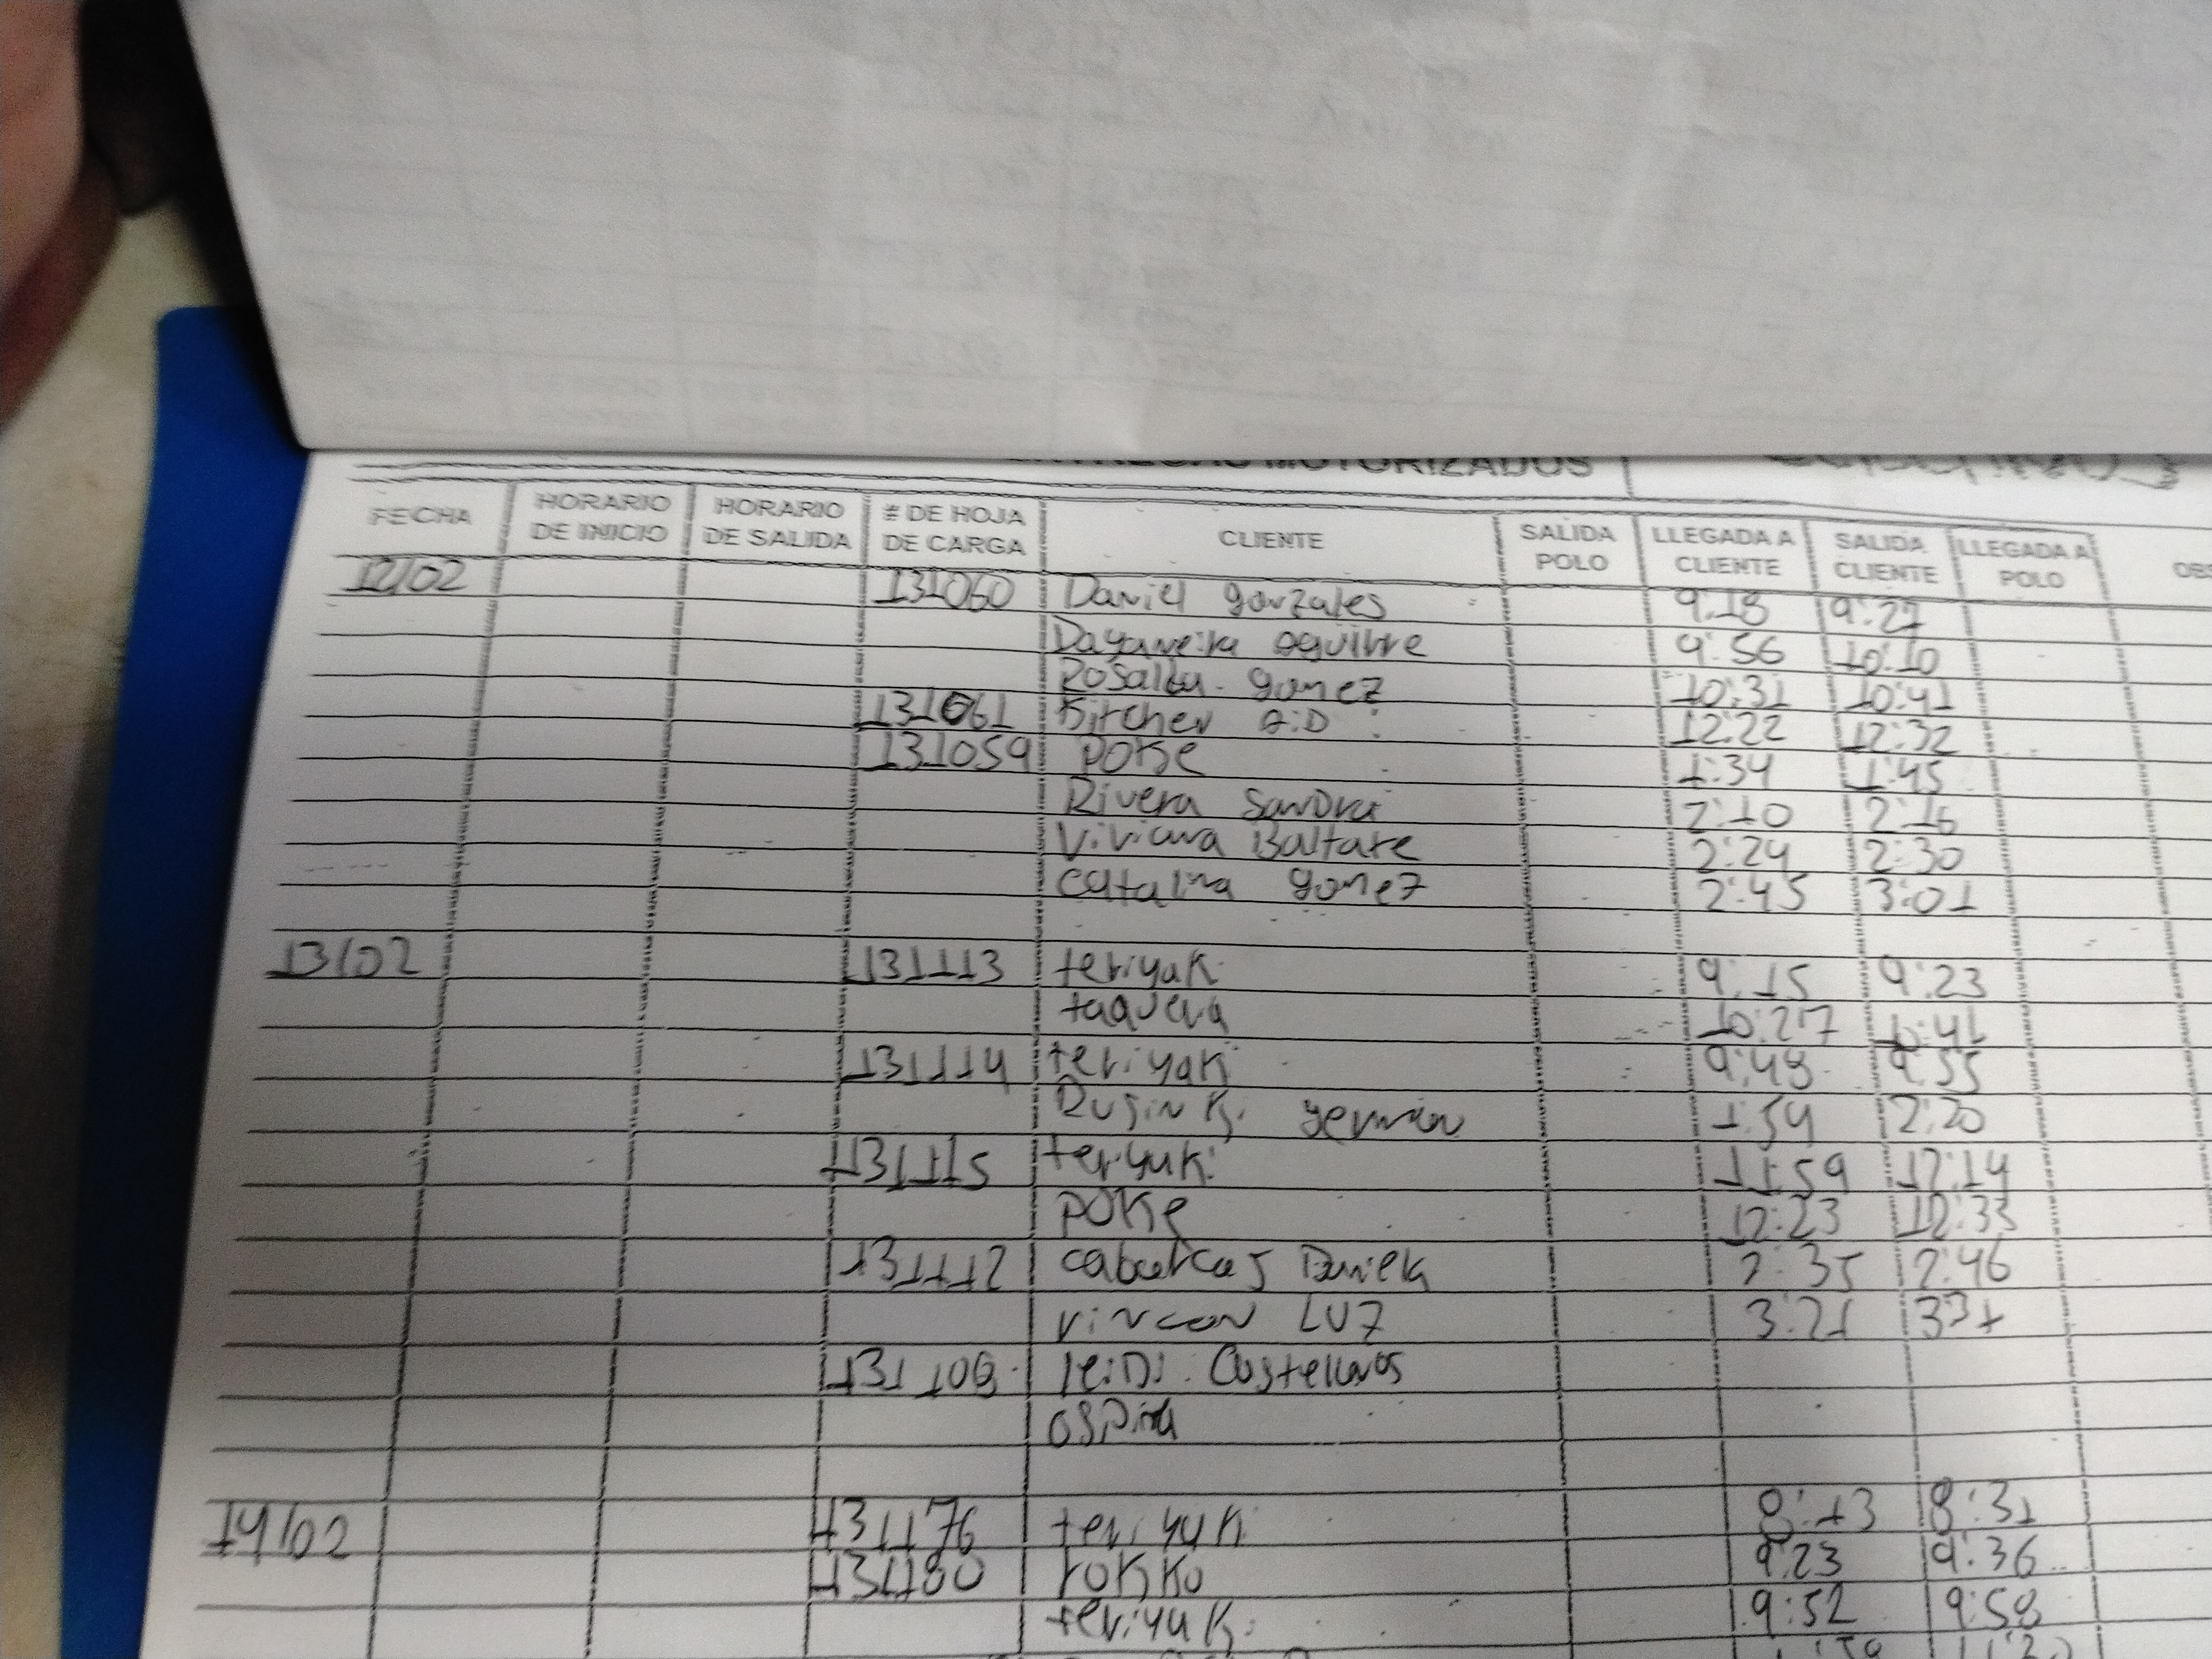 MOTORIZADOS
FECHA HORARIO DE INICIO HORARIO DE SALIDA # DE HOJA DE CARGA CLIENTE SALIDA POLO LLEGADA A CLIENTE SALIDA CLIENTE LLEGADA A POLO
12/02 131060 Daniel gonzales 9:18 9:27
Dayaneira aguirre 9:56 10:10
Rosalba gomez 10:31 10:41
131061 Kitchen 12:22 12:32
131059 POKE 1:34 1:45
Rivera Sandra 2:10 2:16
Viviana Baltare 2:24 2:30
catalina gomez 2:45 3:01
13/02 131113 teriyaki 9:15 9:23
10:27 10:41
131114 teriyaki 9:48 9:55
german 1:54 2:20
131115 teriyaki 11:59 12:14
POKE 12:23 12:33
131112 cabarcas Daniela 2:35 2:46
rincon LUZ 3:21 331
leidi Castellanos
OSPina
14/02 131176 teriyaki 8:13 8:31
131180 rokko 9:23 9:36
teriyaki 9:52 9:58